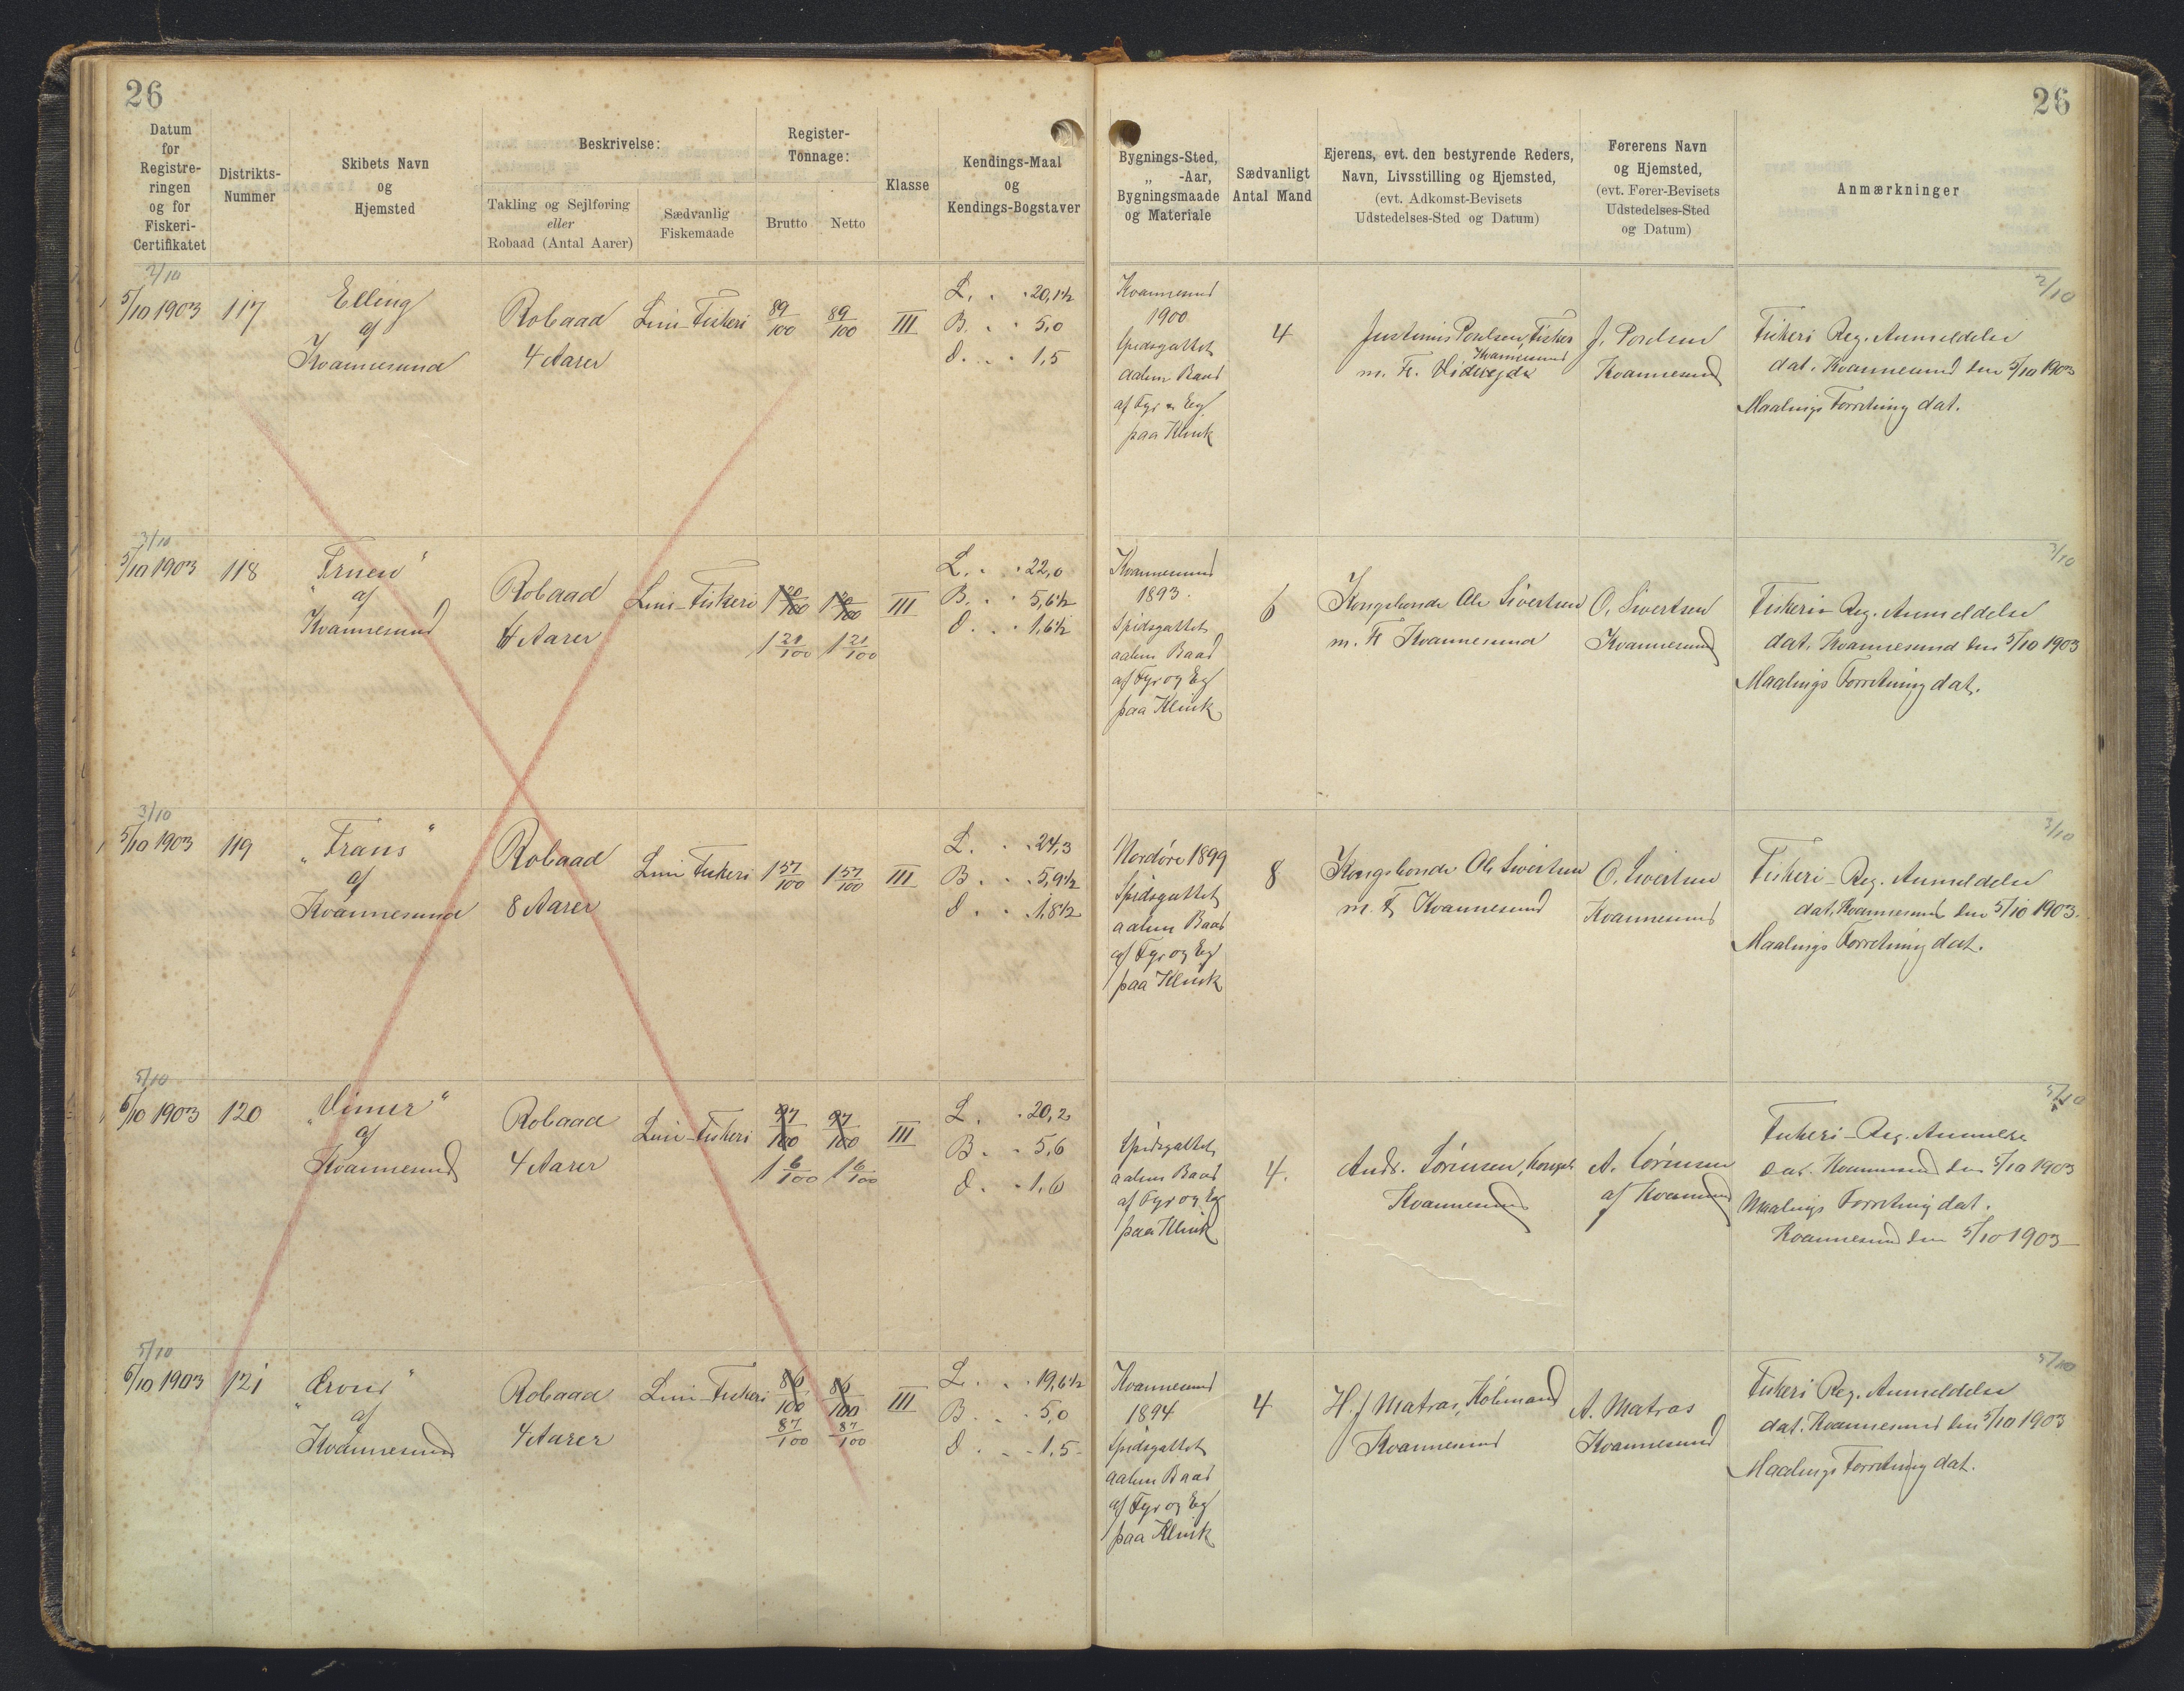 26
26
Datum
for
Registre-
ringen
og for
Fiskeri-
Certifikatet
Distrikts-
Nummer
Skibets Navn
og
Hjemsted
Beskrivelse:
Takling og Sejlføring
eller
Robaad (Antal Aarer)
Sædvanlig
Fiskemaade
Register-
Tonnage:
Brutto
Netto
Klasse
Kendings-Maal
og
Kendings-Bogstaver
Bygnings-Sted,
„ -Aar,
Bygningsmaade
og Materiale
Sædvanligt
Antal Mand
Ejerens, evt. den bestyrende Reders,
Navn, Livsstilling og Hjemsted,
(evt. Adkomst-Bevisets
Udstedelses-Sted og Datum)
Førerens Navn
og Hjemsted,
(evt. Fører-Bevisets
Udstedelses-Sted
og Datum)
Anmærkninger
2/10
5/10 1903
117
Elling
af
Kvannesund
Robaad
4 Aarer
Line-Fiskeri
89/100
89/100
III
L. . . 20,1½
B. . . 5,0
D. . . 1,5
Kvannesund
1900
Spidsgattet
aaben Baad
af Fyr & Eeg
paa Klink
4
Justinus Poulsen, Fisker
Kvannesund
m. F. Videreejde
J. Poulsen
Kvannesund
2/10
Fiskeri Reg. Anmeldelse
dat. Kvannesund den 5/10 1903
Maalings Forretning dat.
3/10
5/10 1903
118
"Fruen"
af
Kvannesund
Robaad
6 Aarer
Line-Fiskeri
1 20/100
1 20/100
1 21/100
1 21/100
III
L. . . 22,0
B. . . 5,6½
D. . . 1,6½
Kvannesund
1893.
Spidsgattet
aaben Baad
af Fyr og Eg
paa Klink
6
Kongsbonde Ole Sivertsen
m. Fl Kvannesund
O. Sivertsen
Kvannesund
3/10
Fiskeri- Reg. Anmeldelse
dat. Kvannesund den 5/10 1903
Maalings Forretning dat.
3/10
5/10 1903
119
„Frans“
af
Kvannesund
Robaad
8 Aarer
Line Fiskeri
1 57/100
1 57/100
III
L. . . 24,3
B. . . 5,9½
D. . . 1,8½
Nordøre 1899
Spidsgattet
aaben Baad
af Fyr og Eg
paa Klink
8
Kongsbonde Ole Sivertsen
m. Fl Kvannesund
O. Sivertsen
Kvannesund
3/10
Fiskeri- Reg. Anmeldelse
dat. Kvannesund den 5/10 1903.
Maalings Forretning dat.
5/10
6/10 1903
120
„Vimer“
af
Kvannesund
Robaad
4 Aarer
Line-Fiskeri
97/100
97/100
1 6/100
1 6/100
III
L. . 20,2
B. . . 5,6
D. . . 1,6
Spidsgattet
aaben Baad
af Fyr og Eg
paa Klink
4.
Andr. Sørensen, Kongsb.
Kvannesund
A. Sørensen
af Kvannesund
5/10
Fiskeri-Reg. Anmelse
Dat. Kvannesund den 5/10 1903
Maalings Forretning dat.
Kvannesund den 5/10 1903
5/10
6/10 1903
121
af
Kvannesund
Robaad
4 Aarer
Line-Fiskeri
86/100
86/100
87/100
87/100
III
L. . . 19,6½
B. . . 5,0
D. . . 1,5
Kvannesund
1894
Spidsgattet
aaben Baad
af Fyr og Eg
paa Klink
4
H. J Matras, Købmand
Kvannesund
A. Matras
Kvannesund
5/10
Fiskeri Reg. Anmeldelse
dat. Kvannesund den 5/10 1903
Maalings Forretning dat.